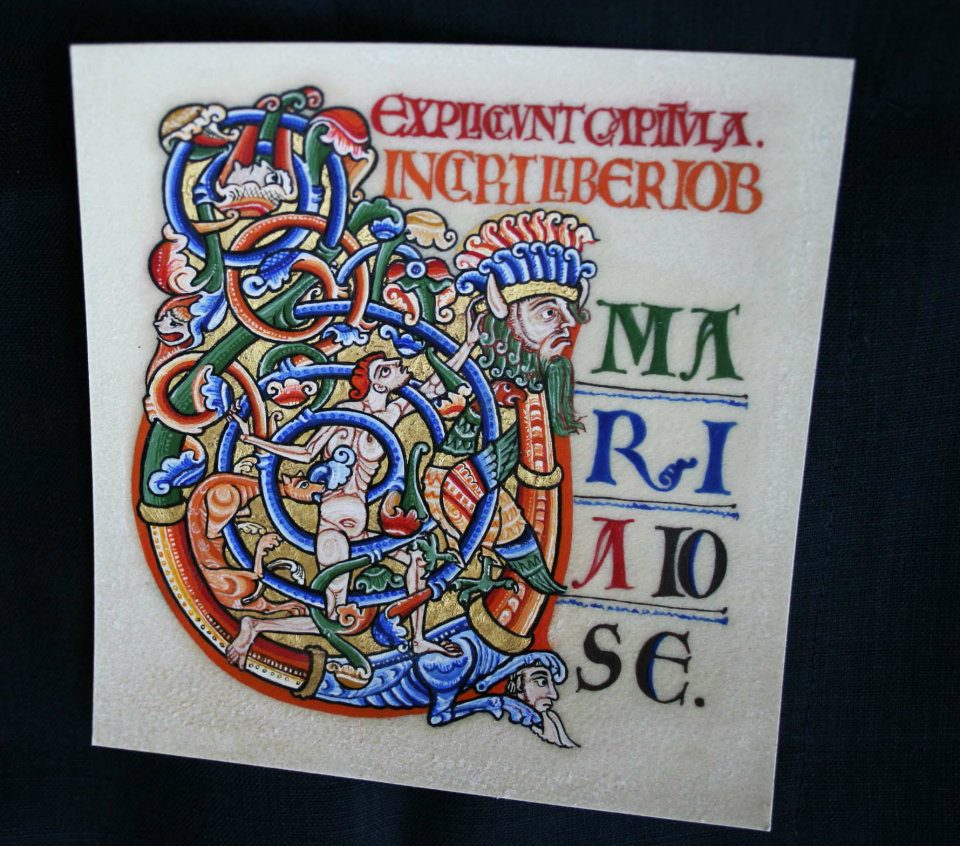 EXPLICIUNT CAPITULA.
INCIPIT LIBER IOB
MA
RI
A IO
SE.